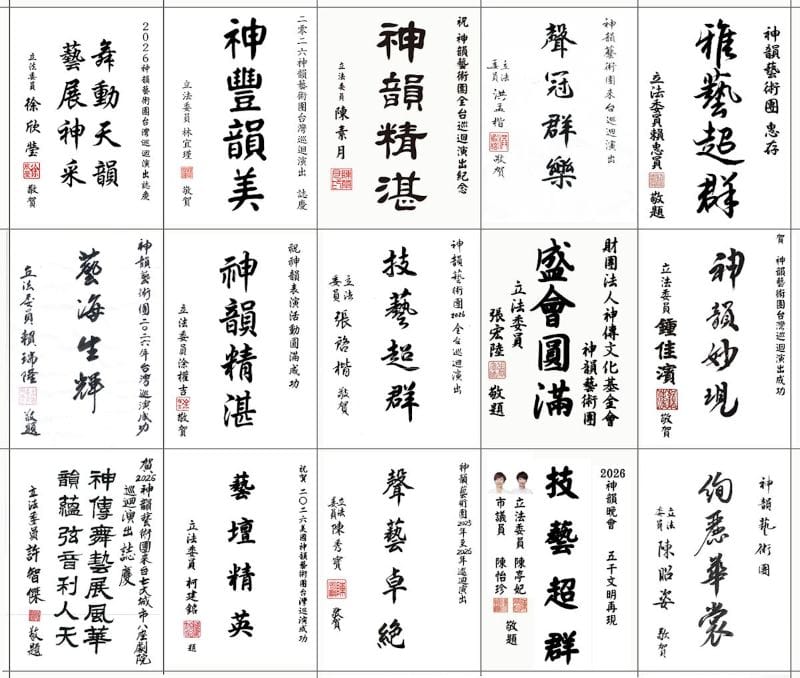 2026神韻藝術團台灣巡迴演出誌慶
舞動天韻
藝展神采
立法委員 徐欣瑩 敬賀
二零二六神韻藝術團台灣巡迴演出 誌慶
神豐韻美
立法委員 林宜瑾 敬賀
祝 神韻藝術團全台巡迴演出紀念
神韻精湛
立法委員 陳素月
神韻藝術團來台巡迴演出
聲冠群樂
立法委員 洪孟楷 敬賀
神韻藝術團 惠存
雅藝超群
立法委員賴惠員 敬題
神韻藝術團二〇二六年台灣巡演成功
藝海生輝
立法委員 賴瑞隆 敬題
祝神韻表演活動圓滿成功
神韻精湛
立法委員徐權吉 敬賀
神韻藝術團2026全台巡迴演出
技藝超群
立法委員 張啓楷 敬賀
財團法人神傳文化基金會
神韻藝術團
盛會圓滿
立法委員
張宏陸 敬題
賀 神韻藝術團台灣巡迴演出成功
神韻妙現
立法委員 鍾佳濱 敬賀
賀2026神韻藝術團來台七大城市八座劇院
巡迴演出誌慶
神傳舞藝展風華
韻蘊弦音利人天
立法委員 許智傑 敬題
祝賀 二〇二六美國神韻藝術團台灣巡演成功
藝壇精英
立法委員 柯建銘 題
神韻藝術團2025年至2026年巡迴演出
聲藝卓絕
立法委員 陳秀寳 敬賀
2026
神韻晚會 五千文明再現
技藝超群
立法委員 陳亭妃
市議員 陳怡珍
敬題
神韻藝術團
絢麗華裳
立法委員 陳昭姿 敬賀